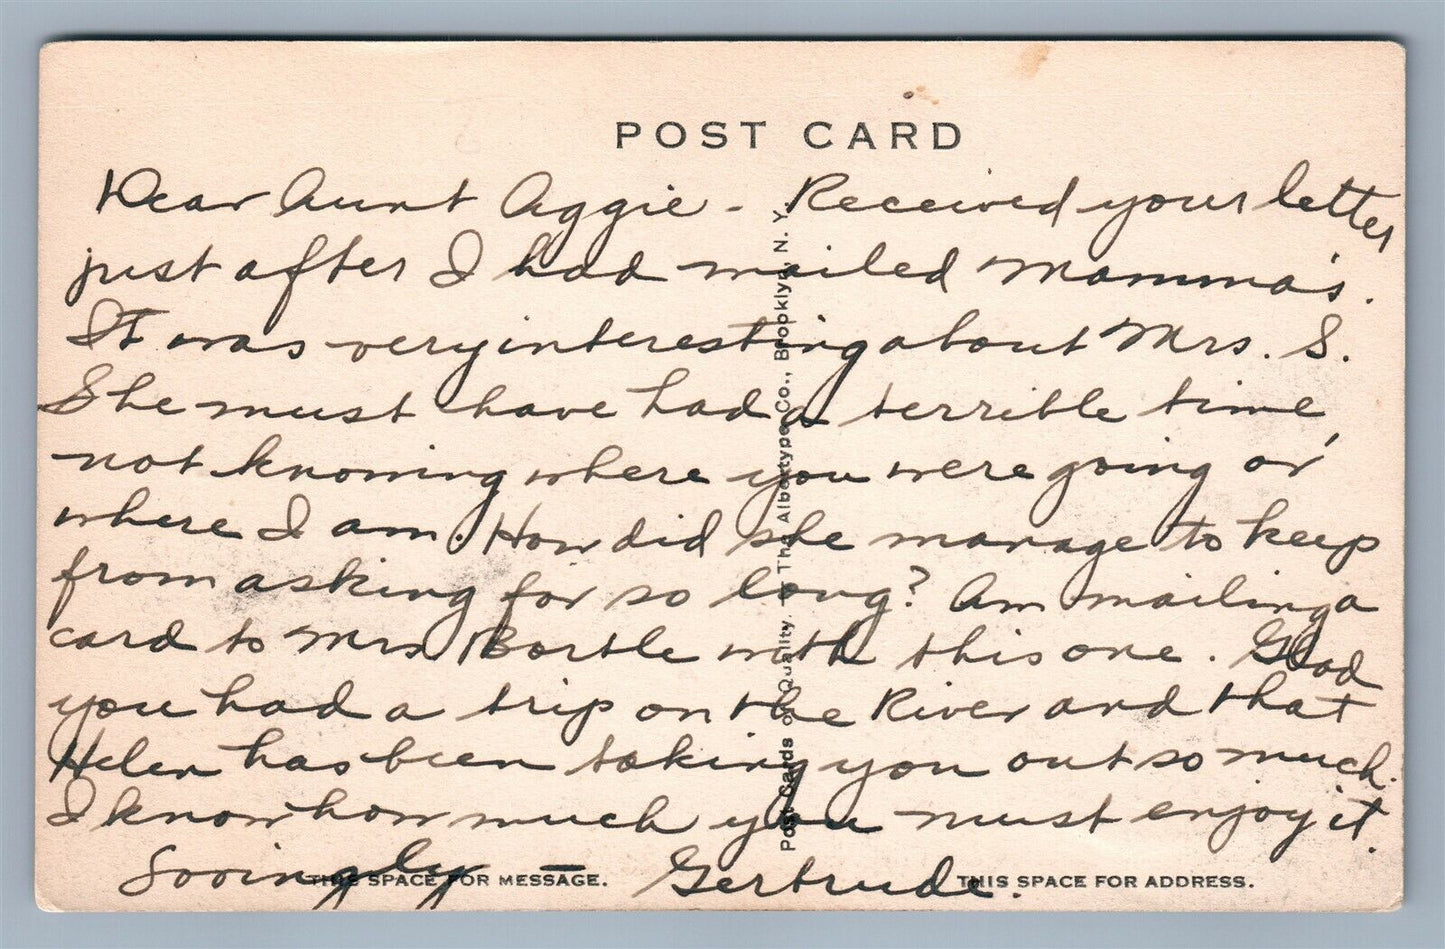 POST CARD
Dear Aunt Aggie - Received your letter
just after I had mailed Mamma's.
It was very interesting about Mrs. S.
She must have had a terrible time,
not knowing where you were going or
where I am. How did she manage to keep
from asking for so long? Am mailing a
card to Mrs Bortle with this one. Glad
you had a trip on the River and that
Helen has been taking you out so much.
I know how much you must enjoy it.
Lovingly — Gertrude.
THIS SPACE FOR MESSAGE. THIS SPACE FOR ADDRESS.
Post Cards of Quality. — The Albertype Co., Brooklyn, N. Y.